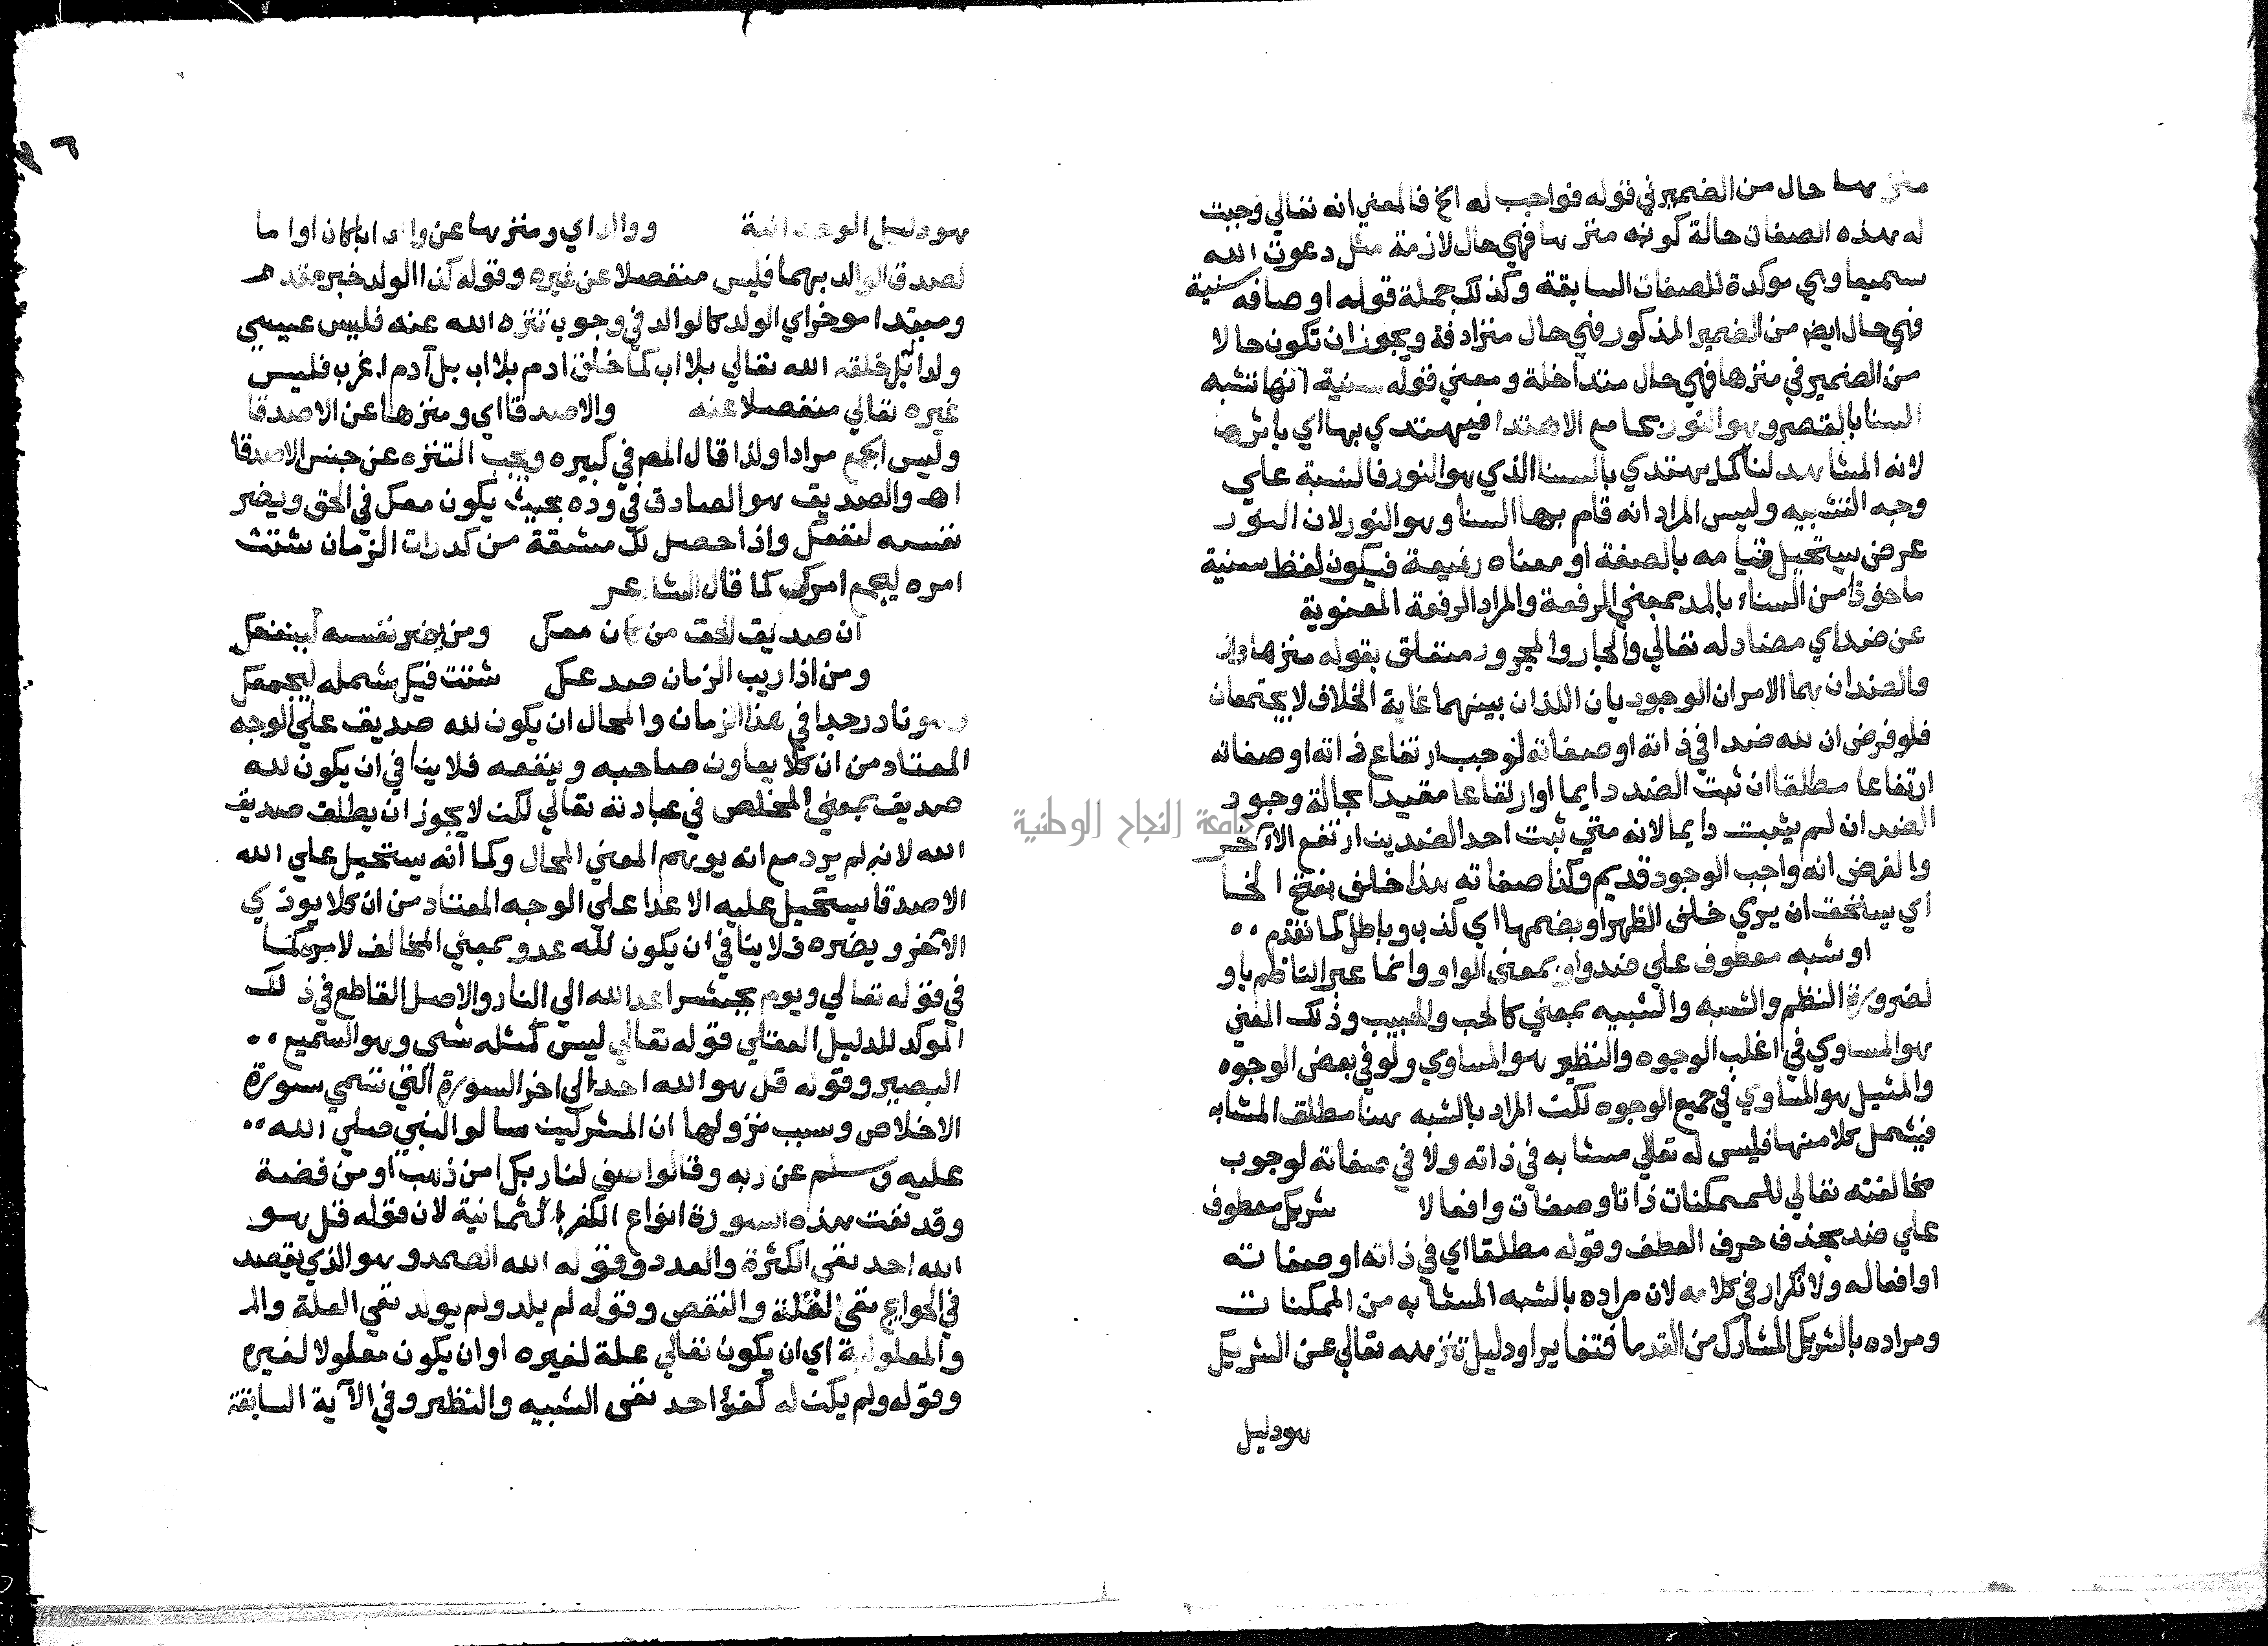 منزها حال من الضمير في قوله فواجب له الخ فالمعني انه تعالي وجبت
له هذه الصفات حالة كونه منزها فهي حال لازمة مثل دعوت الله
سميعا وهي موكدة للصفات السابقة وكذلك جملة قوله اوصافه سنية
فهي حال ايض من الضمير المذكور فهي حال مترادفة ويجوز ان تكون حالا
من الضمير في منزها فهي حال متداخلة ومعني قوله سنية انها تشبه
السنا بالقصر وهو النور بجامع الاهتدا فيهتدي بها اي باثرها
لانه المشاهد لنا كما يهتدي بالسنا الذي هو النور فالنسبة علي
وجه التشبيه وليس المراد انه قام بها السنا وهو النور لان النور
عرض يستحيل قيامه بالصفة او معناه رفيعة فيكون لفظ سنية
ماخوذا من السناء بالمد بمعني الرفعة والمراد الرفعة المعنوية
عن ضد اي مضاد له تعالي والجار والمجرور متعلق بقوله منزها
والضدان هما الامران الوجوديان اللذان بينهما غاية الخلاف لا يجتمعان
فلو فرض ان لله ضدا في ذاته او صفاته لوجب ارتفاع ذاته او صفاته
ارتفاعا مطلقا ان ثبت الضد دايما او ارتفاعا مقيدا بحالة وجود
الضد ان لم يثبت دايما لانه متي ثبت احد الضدين ارتفع الاخر
والفرض انه واجب الوجود قديم وكذا صفاته هذا خلف بفتح الخا
اي يستحق ان يرمي خلف الظهر او بضمها اي كذب وباطل كما تقدم
او شبه معطوف علي ضد واو بمعني الواو وانما عبر الناظم باو
لضرورة النظم والشبه والشبيه بمعني كالحب والحبيب وذلك المعني
هو المساوي في اغلب الوجوه والنظير هو المساوي ولو في بعض الوجوه
والمثيل هو المساوي في جميع الوجوه لكن المراد بالشبه هنا مطلق المشابه
فيشمل كلا منها فليس له تعالي مشابه في ذاته ولا في صفاته لوجوب
مخالفته تعالي للممكنات ذاتا وصفات وافعالا شريك معطوف
علي ضد بحذف حرف العطف وقوله مطلقا اي في ذاته او صفاته
او افعاله ولا تكرار في كلامه لان مراده بالشبه المشابه من الممكنات
ومراده بالشريك المشارك من القدما فتغايرا ودليل تنزهه تعالي عن الشريك
هو دليل
هو دليل الوحدانية ووالد اي ومنزها عن والد ابا كان او اما
لصدق الوالد بهما فليس منفصلا عن غيره وقوله كذا الولد خبر مقدم
ومبتدا موخر اي الولد كالوالد في وجوب تنزه الله عنه فليس عيسي
ولدا بل خلقه الله تعالي بلا اب كما خلق ادم بلا اب بل آدم اغرب فليس
غيره تعالي منفصلا عنه والاصدقا اي ومنزها عن الاصدقا
وليس الجمع مرادا ولذا قال المص في كبيره ويجب التنزه عن جنس الاصدقا
اهـ والصديق هو الصادق في وده بحيث يكون معك في الحق ويضر
نفسه لنفعك واذا حصل لك مشقة من كدرات الزمان شتت
امره ليجمع امرك كما قال الشاعر
ان صديق الحق من كان معك ومن يضر نفسه لينفعك
ومن اذا ريب الزمان صدعك شتت فيك شمله ليجمعك
وهو نادر جدا في هذا الزمان والمحال ان يكون لله صديق علي الوجه
المعتاد من ان كلا يعاون صاحبه وينفعه فلا ينافي ان يكون لله
صديق بمعني المخلص في عبادته تعالي لكن لا يجوز ان يطلق صديق
الله لانه لم يرد مع انه يوهم المعني المحال وكما انه يستحيل علي الله
الاصدقا يستحيل عليه الاعدا علي الوجه المعتاد من ان كلا يوذي
الآخر ويضره فلا ينافي ان يكون لله عدو بمعني المخالف لامره كما
في قوله تعالي ويوم يحشر اعدا الله الي النار والاصل القاطع في ذلك
الموكد للدليل العقلي قوله تعالي ليس كمثله شي وهو السميع
البصير وقوله قل هو الله احد الي اخر السورة التي تسمي سورة
الاخلاص وسبب نزولها ان المشركين سالو النبي صلي الله
عليه وسلم عن ربه وقالوا صف لنا ربك امن ذهب او من فضة
وقد نفت هذه السورة انواع الكفر الثمانية لان قوله قل هو
الله احد نفي الكثرة والعدد وقوله الله الصمد وهو الذي يقصد
في الحوايج نفي القلة والنقص وقوله لم يلد ولم يولد نفي العلة
والمعلولية اي ان يكون تعالي علة لغيره او ان يكون معلولا لغيره
وقوله ولم يكن له كفؤا احد نفي الشبيه والنظير وفي الآية السابقة
جامعة النجاح الوطنية